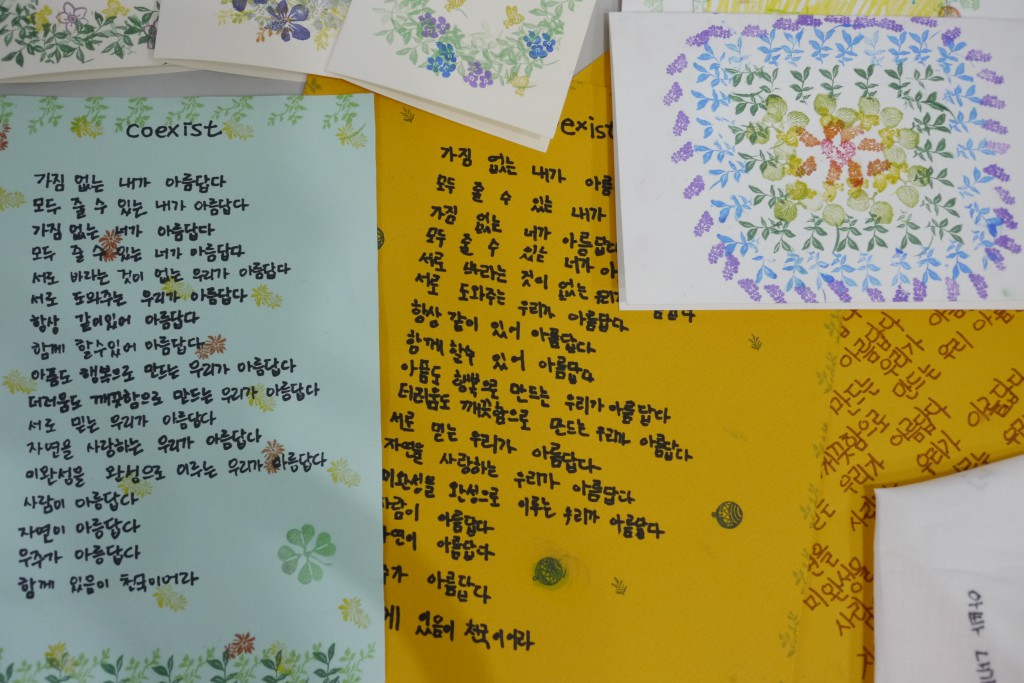 coexist
가짐 없는 내가 아름답다
모두 줄 수 있는 내가 아름답다
가짐 없는 너가 아름답다
모두 줄 수 있는 너가 아름답다
서로 바라는 것이 없는 우리가 아름답다
서로 도와주는 우리가 아름답다
항상 같이있어 아름답다
함께 할수있어 아름답다
아픔도 행복으로 만드는 우리가 아름답다
더러움도 깨끗함으로 만드는 우리가 아름답다
서로 믿는 우리가 아름답다
자연을 사랑하는 우리가 아름답다
미완성을 완성으로 이루는 우리가 아름답다
사람이 아름답다
자연이 아름답다
우주가 아름답다
함께 있음이 천국이어라
exist
가짐 없는 내가 아름
모두 줄 수 있는 내가
가짐 없는 너가 아름답다
모두 줄 수 있는 너가 아
서로 바라는 것이 없는 우리가
서로 도와주는 우리가 아름답다
항상 같이 있어 아름답다
함께 할수 있어 아름답다
아픔도 행복으로 만드는 우리가 아름답다
더러움도 깨끗함으로 만드는 우리가 아름답다
서로 믿는 우리가 아름답다
자연을 사랑하는 우리가 아름답다
미완성을 완성으로 이루는 우리가 아름답다
사람이 아름답다
자연이 아름답다
아름답다
있음이 천국이어라
아름답다
우리가
만드는
우리
아름
만드는
깨끗함으로
아름답다
우리가
우리가
아름답다
미완성을
사람